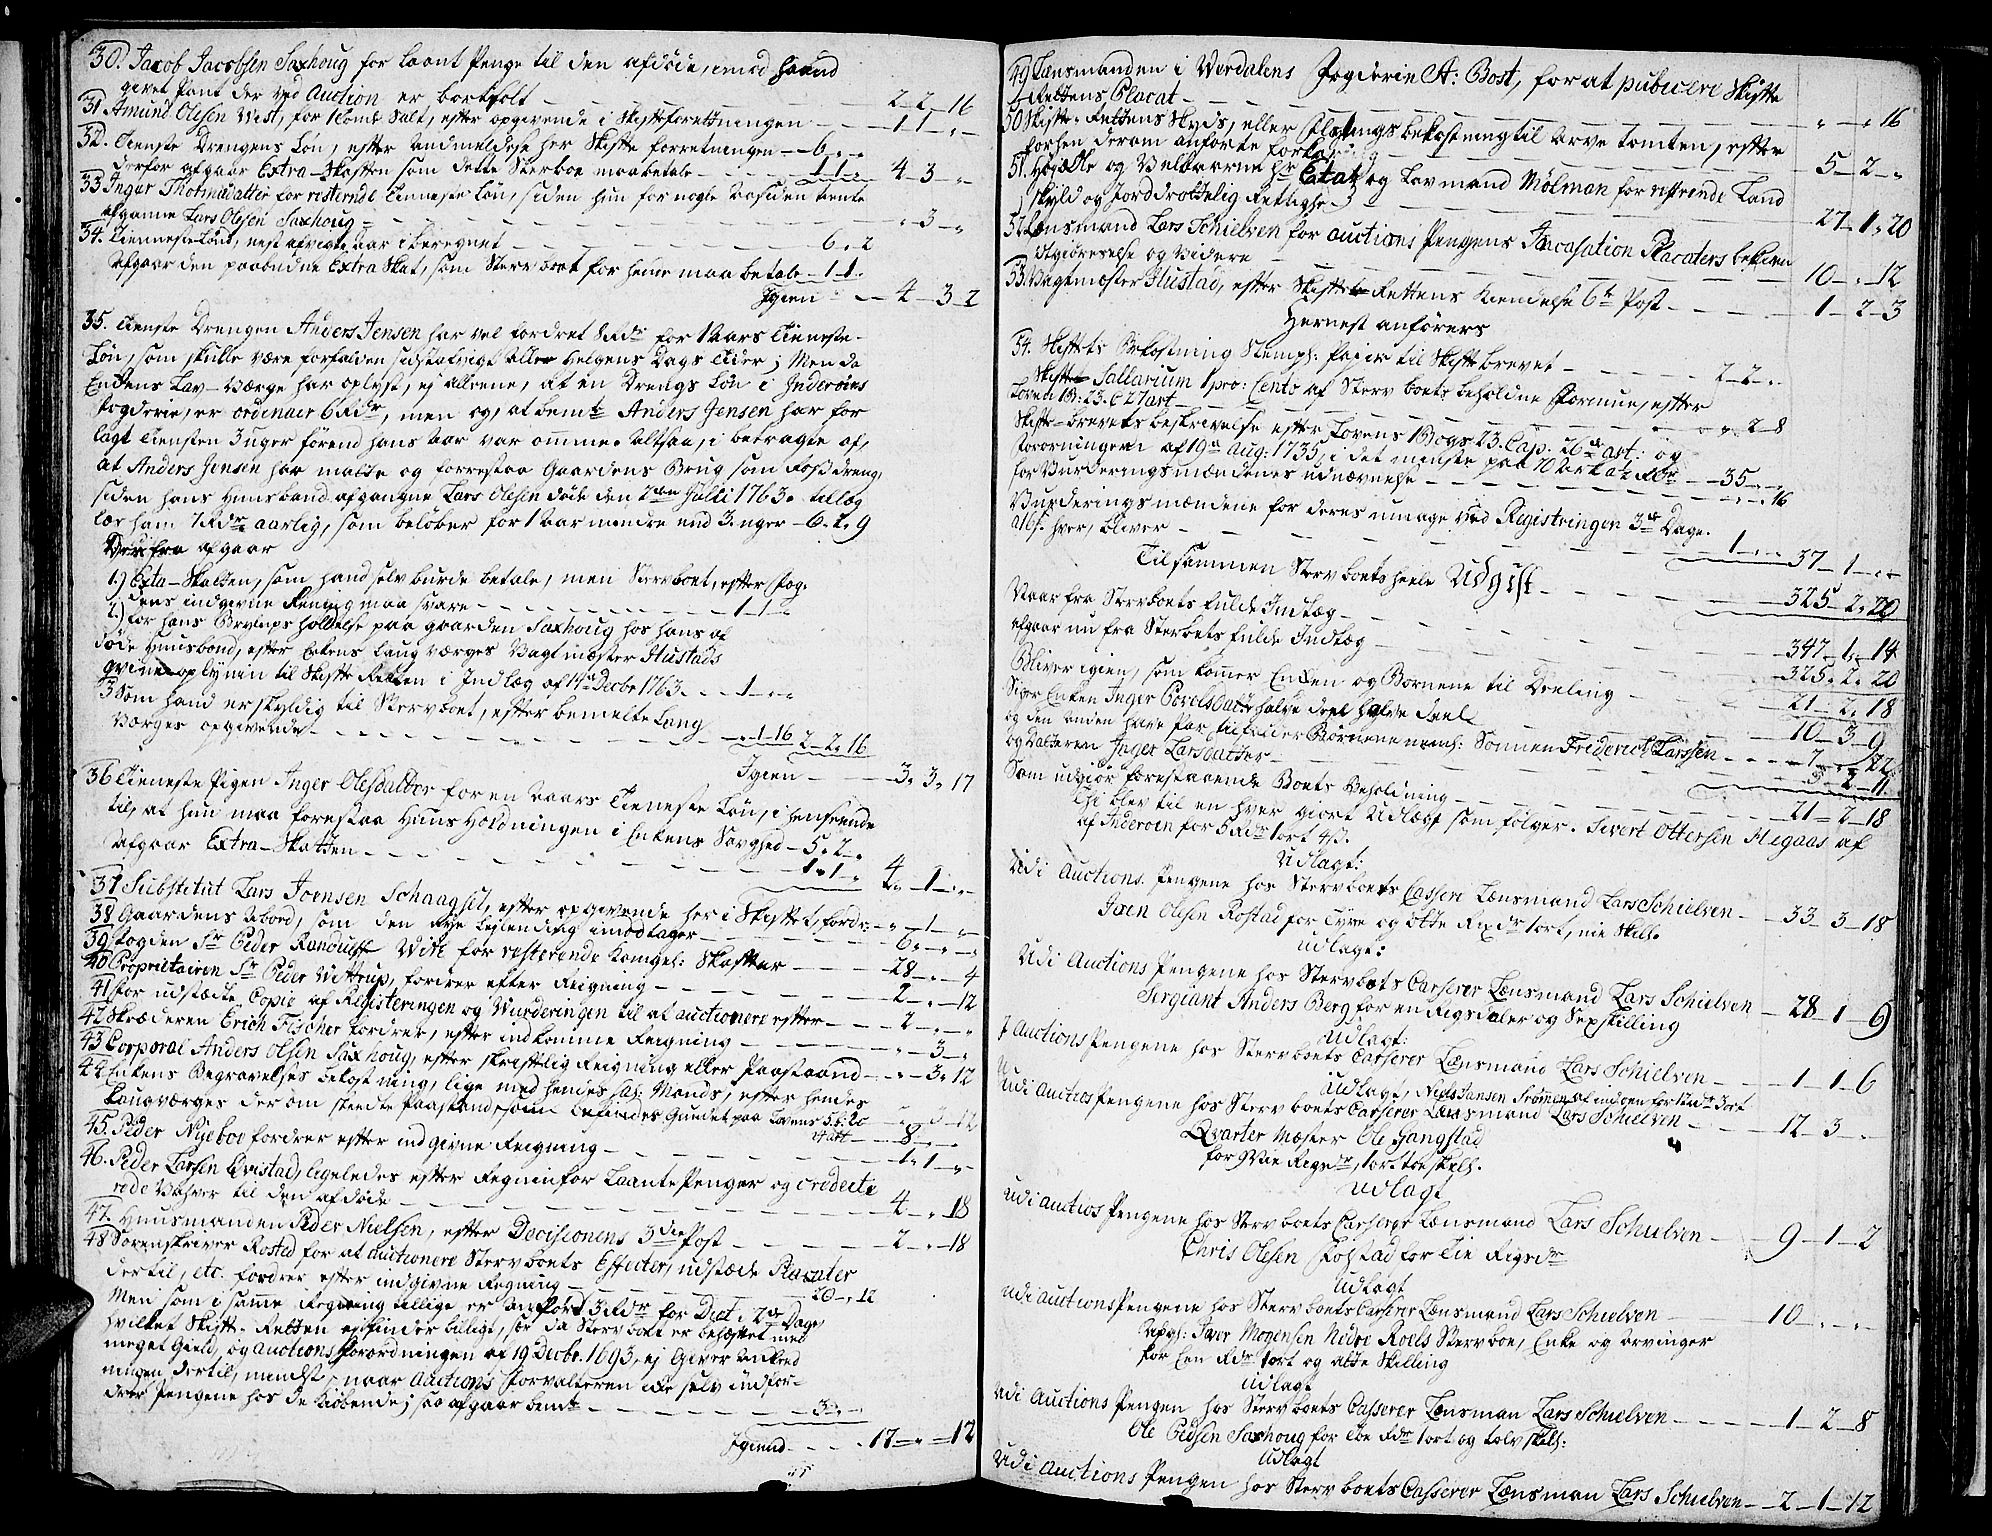 30. Jacob Jacobsen Saxhoug for laant Penge til den afdøde, imod haand
givet Pant der ved Auction er bortsolt - 2 - 2 - 16
31 Amund Olsen West, for 1 Tønde Salt, efter opgivende i Skifteforretningen - 1 1 - „
32. Tieneste Drengens Løn, efter Anmeldelse her Skifte forretningen - 6 „ „
derfor afgaar Extra-Skatten som dette Sterboe maa betale - 1 1 „ 4 - 3 - „
33 Inger Thomædatter for resterende Tienneste Løn, siden hun for nogle Aar siden tiente
afgangne Lars Olesen Saxhoug - „ 3 - „
34. Tienneste Løn, nest afvigte aar i beregnet - 6 „ 2
Afgaar den paabudne Extra Skat, som Stervboet for hende maa betale - 1 1 „
Igien - 4 - 3 - 2
35. Tieneste Drengen Anders Jensen har vel fordret 8 Rdr for 1 Aars Tieneste-
Løn, som skulle være forfalden sidst afvigt Aller Helgens Dags Tider; Men da
Enkens Lav-Værge har oplyst, ej alleene, at en Drengs Løn i Inderøens
Fogderie, er ordenaer 6 Rdr, men og, at bemte Anders Jensen har for
lagt Tiensten 3 uger førend hans Aar var omme. Altsaa, i betragte af,
at Anders Jensen har malte og forrestaa Gaardens Brug som dreng,
siden hans Huusbond afgangne Lars Olesen døde den 2den Julii 1763. tillæg
ham 7 Rdr aarlig, som beløber for 1 Aar mindre end 3. uger - 6. 2. 9
Derfra afgaar
1.) Exta-Skatten, som hand selv burde betale, men Stervboet, efter Fog-
dens indgivne Rening maa svare - 1 - 1 - „
2.) for hans Bryllups holdelse paa gaarden Saxhoug hos hans af
døde Huusbond, efter Enkens Laug værges Vagtmæster Hustads
givne oplysnin til Skifte Retten i Indlæg af 14de Decbr 1763. - 1 „ „
3 Som hand er skyldig til Stervboet, efter bemelte Laug
Værges opgivende - „ 1 - 16 2 - 2 „ 16
Igien - 3 „ 3 „ 17
36 Tieneste Pigen Inger Olesdatter for en Aars Tieneste Løn, i henseende
til, at hun maa forestaa Huus Holdningen i Enkens Svaghed - 5 „ 2 „
Afgaar Extra-Skatten - 1 „ 1 „ 4 „ 1 „ „
37 Substitut Lars Joensen Schaagset, efter opgivende her i Skiftet, fordr: - „ 1 - „
38 Gaardens Abord, som den nye Leilending imodtager - 6 „ „
39 Fogden Sr Peder Randulff With for resterende Kongel: Skatter - 28 „ „ 4
40 Proprietairen Sr Peder Wittrup, fordrer efter Reigning - 2 - „ 12
41 for udstædte Copie af Registeringen og Wurderingen til at auctionere efter - 2 - „ „
42 Skræderen Erich Fischer fordrer, efter indkomne Reigning - „ 3 - „
43 Corporal Anders Olsen Saxhoug, efter skriftlig Reigning eller Paastand - „ 3 „ 12
44 Enkens Begravelses bekostning, lige med hendes Sal: Mands, efter hendes
Laugværges der om skeedte Paastand, som befindes Grundet paa Lovens 5. b: 2 c
art - 8 „ „
45. Peder Nyeboe fordrer efter indgivne Reigning - 1 „ 1 - „
46. Peder Larsen Qvistad, ligeledes efter Regnin for Laante Penger og Credite
rede Vahrer til den afdøde - 4 - „ 18
47. Huusmanden Peder Nielsen, efter Decisionens 3die Post - 2 - „ 18
48 Sorenskriver Rosted for at auctionere Stervboets Effecter, udstæde Placater
dertil, etc. fordrer efter indgivne Regning - 20 - „ 12
Men som i samme Regning tillige er Anført 3 Rdr for Diet i 2de Dage,
hvilket Skifte-Retten ej finder billigt, sær da Stervboet er behæftet med
meget Gield, og auctions forordningen af 19 Decbr. 1693, ej Giver Anled
ningen dertil, mindst naar Auctions Forvalteren icke selv indfor-
drer Pengene hos de Kiøbende; saa afgaar bemte - 3 „ „
Igiend - 17 - „ - 12
49 Lænsmanden i Werdalens Fogderie A: Bost, for at publicere Skifte
Rettens Placat - „ - „ 16
50 Skifte-Rettens Skyds, eller Flytnings bekostning til Arve tomten, efter
forhen derom anførte forklaring - 5 - 2 - „
51. Høiædle og Velbaarne Hr Etat og Lavmand Mølman for resterende Land
skyld og Jorddrottelig Rettighed - 27 - 1 „ 20
52 Lænsmand Lars Schielven for auctions Pengens Incasation Placaters bekien
dtgiørrelse og Videre - 10 - „ 12
53. Vagtmæster Hustad, efter Skifte Rettens Kiendelse 6te Post - 1 - 2 - 3
Hernest anføres
54. Skiftets Bekostning Stempl: Papier til Skiftebrevet - 2 - 2 „ „
Skifte Sallarium 1 pro: Cento af Stervboets beholdne Formue, efter
Loven 1 B: 23. C 27 art - „ „ 2 - 8
Skifte-brevets beskrivelse efter Lovens 1 Bogs 23. Cap. 26de art: og
Forordningen af 19de Aug: 1735, i det minste paa 70 Ark a ½ Rdr - 35 „ „
for Vurderings mændenes udnævnelse - „ „ 16
Vurderings mændene for deres umage ved Registringen 3de Dage.
a 16 s. hver, bliver - 1 - „ „ 37 - 1 - „
Tilsammen Stervboets heele Udgift - 325 - 2 „ 20
Naar fra Stervboets fulde Indtæg - 347 - 1 „ 14
afgaar nu fra Sterboets fulde Indtæg - 325 „ 2 „ 20
Bliver igien, som komer Enken og Børnene til Deeling - 21 - 2 „ 18
Siger Enken Inger halve deel halve deel - 10 - 3 - 9
og den anden halve Part tilfalder Børnene neml: Sønnen Friderich Larssen - 7 - „ 22
og Datteren Inger Larsdatter - 3 - 2 - 11
Som udgiør forestaaende Boets Beholdning - 21 - 2 - 18
Thi blev til en hver giort Udlægt som følger. Sivert Ottersen Hegaas af
af Inderøen for 5 Rdr 1 ort 4 s.
Udlagt:
Udi Auctions Pengene hos Stervboets Cassere Lænsmand Lars Schielven - 33 - 3 - 18
Iven Olesen Rostad for Tyve og Otte Rixdr 1 ort, nie Skill.
Udlagt:
Udi Auctions Pengene hos Stervboets Casserer Lænsmand Lars Schielven - 28 - 1 - 9
Sergiant Anders Berg for en Rigsdaler og Sexskilling
Udlagt:
I Auctions Pengene hos Stervboets Casserer Lænsmand Lars Schielven - 1 - 1 - 6
Udlagt, Niels Jansen af indøen for 12 Rdr 3 ort
Udi Auctios Pengene hos Stervboets Casserer Lænsmand Lars Schielven - 12 - 3 - „
Qvarter Mæster Ole Gangstad
for 9 Nie Rigsdr, 1 ort toe skill.
Udlagt
Udi Auctios Pengene hos Stervboets Casserer Lænsmand Lars Schielven - 9 - 1 - 2
Chris Olesen for Tie Rigsdr
Udlagt
Udi auctions Pengene hos Stervboets Casserer Lænsmand Lars Schielven - 10 - „ „
Afgl: Iver Mogensen Nedre Roels Stervboe, Enke og Arvinger
for Een Rdr 1 ort og otte Skilling
Udlagt
Udi Auctions Pengen hos Stervboets Casserer Lænsman Lars Schielven - 1 - 2 - 8
Ole Saxhoug for toe Rdr 1 ort og tolv skill:
Udlagt
Udi Auctions Pengen hos Stervboets Casserer Lænsman Lars Schielven - 2 - 1 - 12